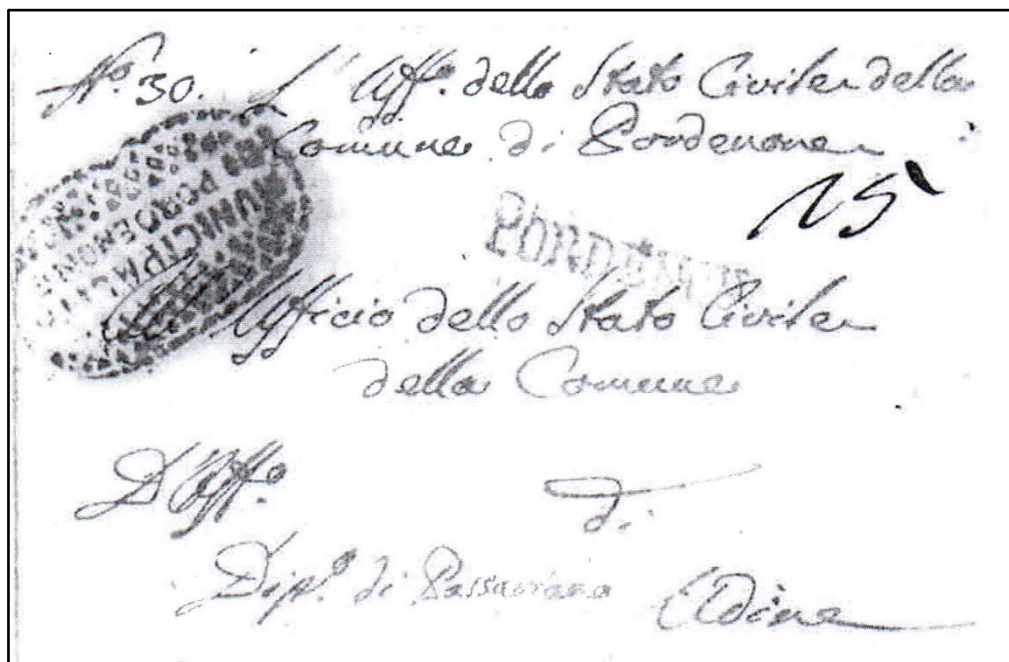 N.º 30. L' Uff.º dello Stato Civile della
Comune di Pordenone
15
MUNICIPALITÀ
DI PORDENONE
PORDENONE
All' Ufficio dello Stato Civile
della Comune
D'Uff.º di
Dip.º di Passariano Udine